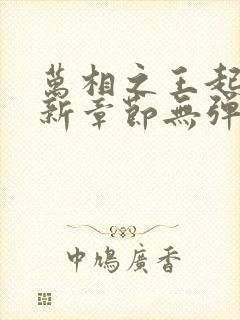 萬相之王起
新章節無彈
中鳩廣香